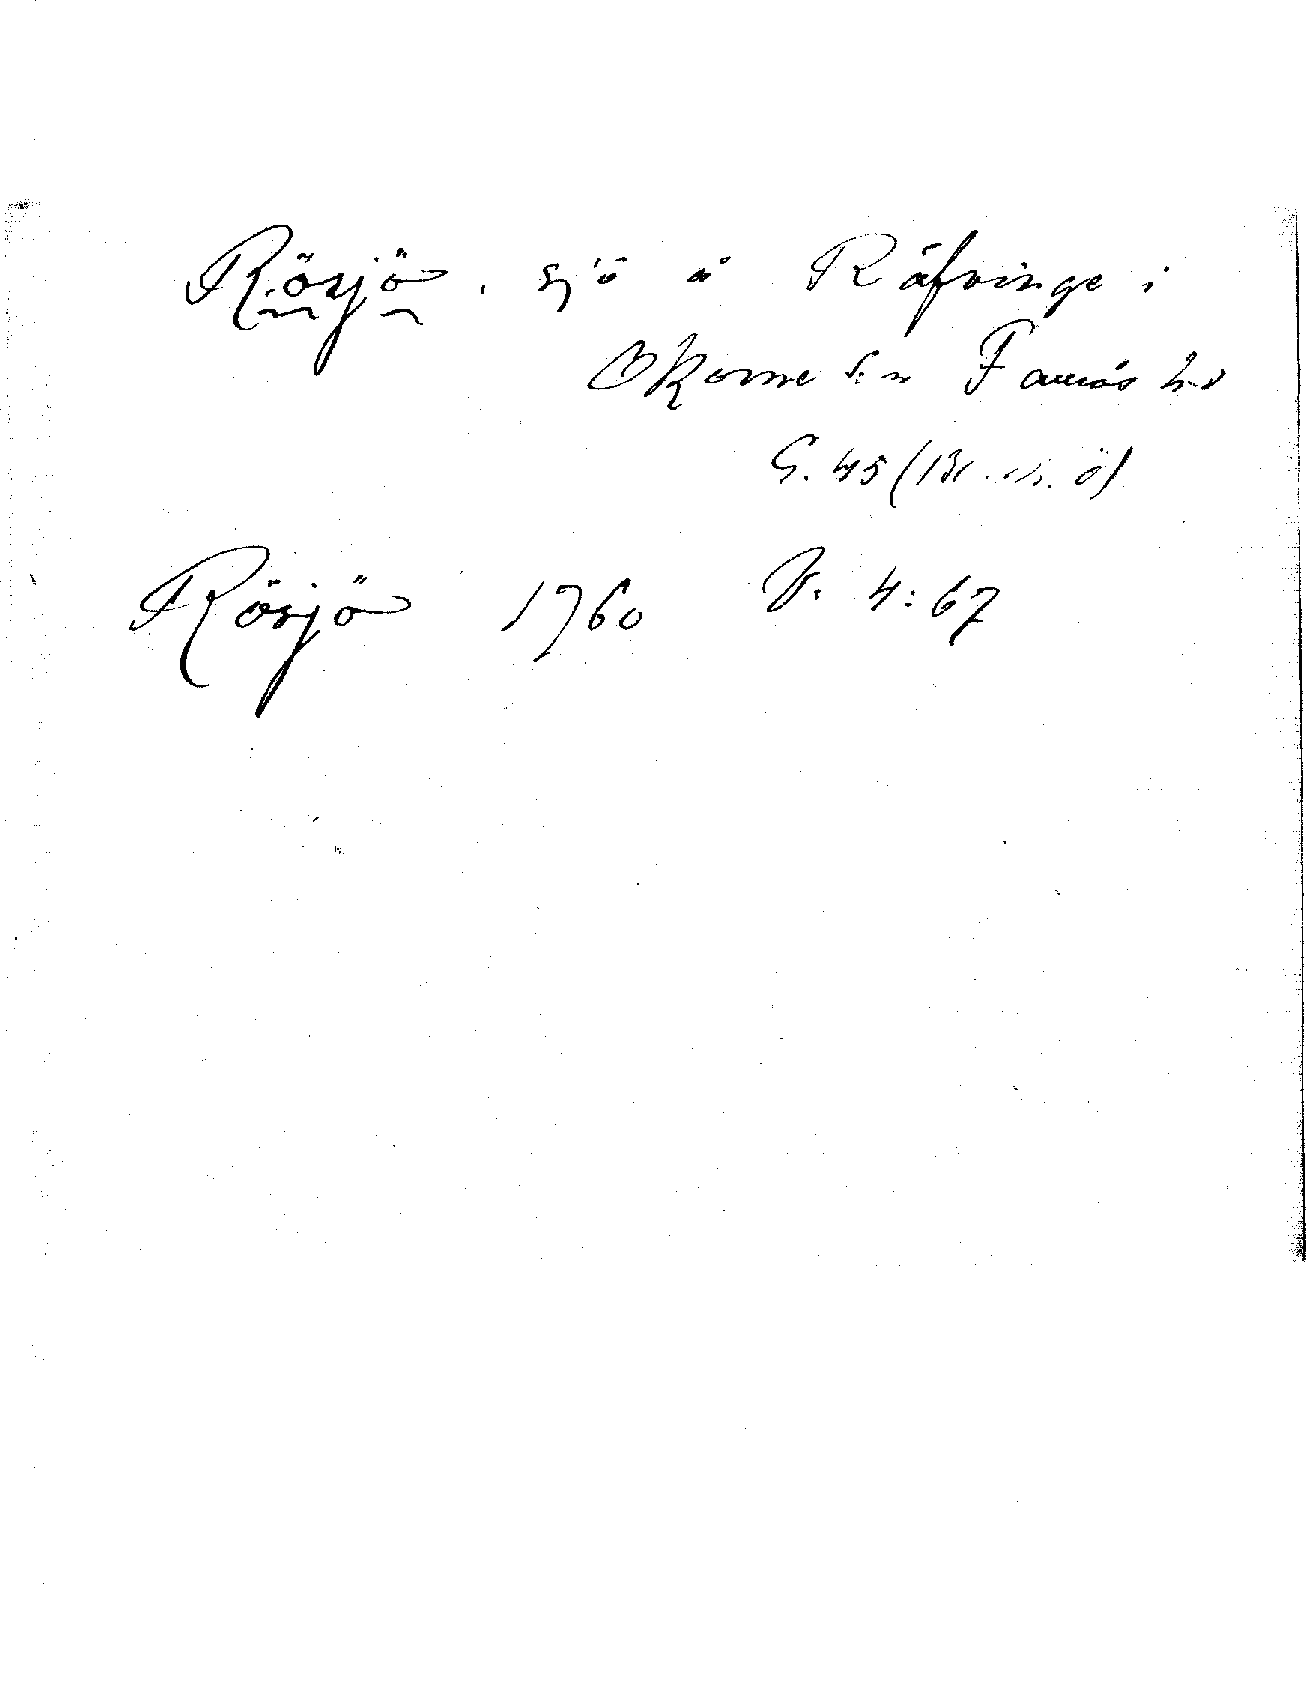 Rösjö, sjö å Räfvinge i
Økome s:n Faurås h-d
G. 45 ( ö)
Rösjö 1760 V. 4:67